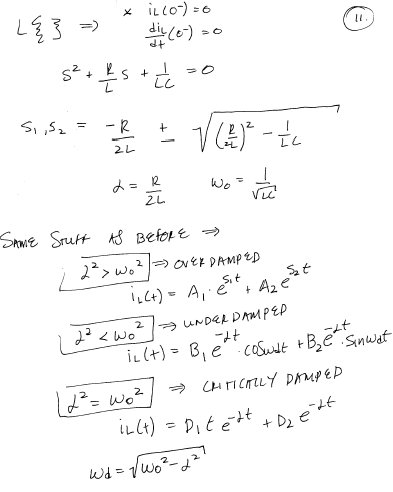 L{ } ⇒ * iL(0⁻) = 0
diL/dt (0⁻) = 0
11.
S² + R/L S + 1/LC = 0
S₁, S₂ = -R/2L ± √((R/2L)² - 1/LC)
α = R/2L    ω₀ = 1/√LC
SAME STUFF AS BEFORE ⇒
α² > ω₀² ⇒ OVERDAMPED
iL(t) = A₁ · e^{S₁t} + A₂ e^{S₂t}
α² < ω₀² ⇒ UNDERDAMPED
iL(t) = B₁ e^{-αt} · cos ωdt + B₂ e^{-αt} · sin ωdt
α² = ω₀² ⇒ CRITICALLY DAMPED
iL(t) = D₁ t e^{-αt} + D₂ e^{-αt}
ωd = √(ω₀² - α²)